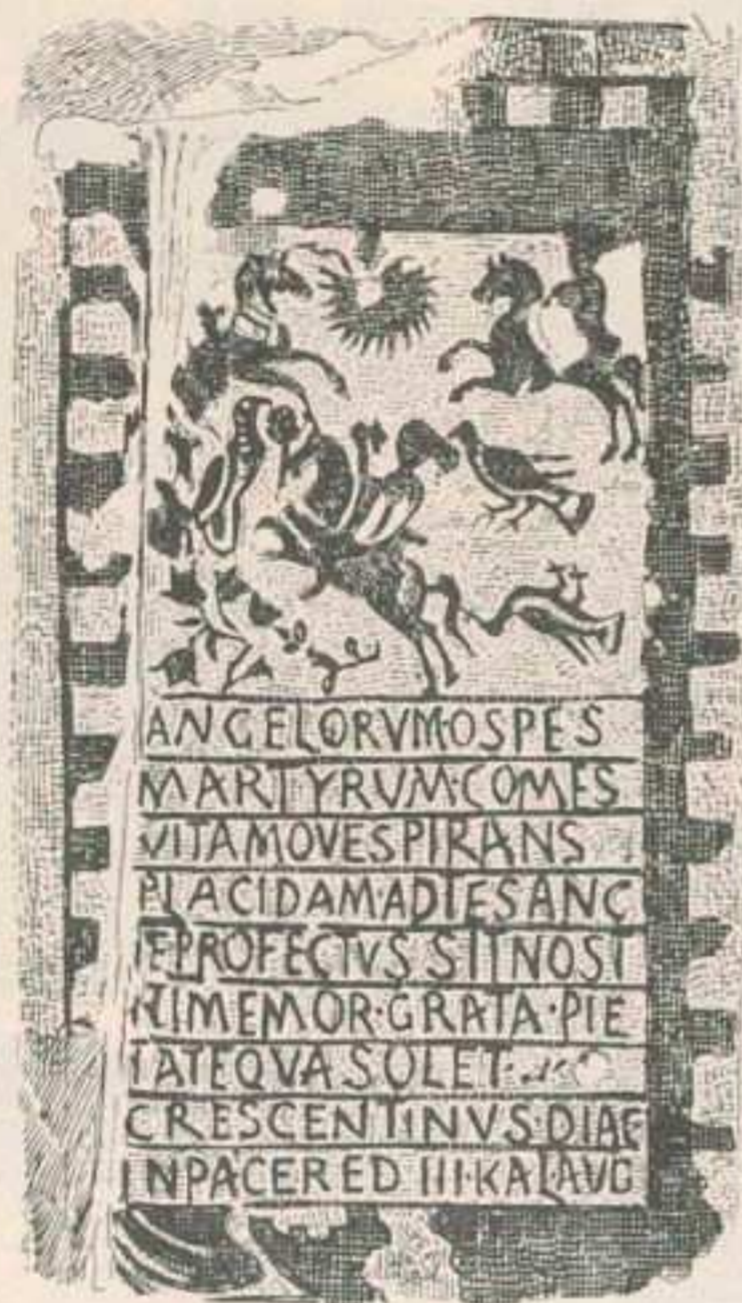 ANGELORVM·OSPES
MARTYRVM·COMES
VITAMOVESPIRANS
PLACIDAM·ADTESANC
TEPROFECTVS SITNOST
RIMEMOR·GRATA·PIE
TATEQVASOLET
CRESCENTINVS·DIAE
INPACERED III·KAL·AUG